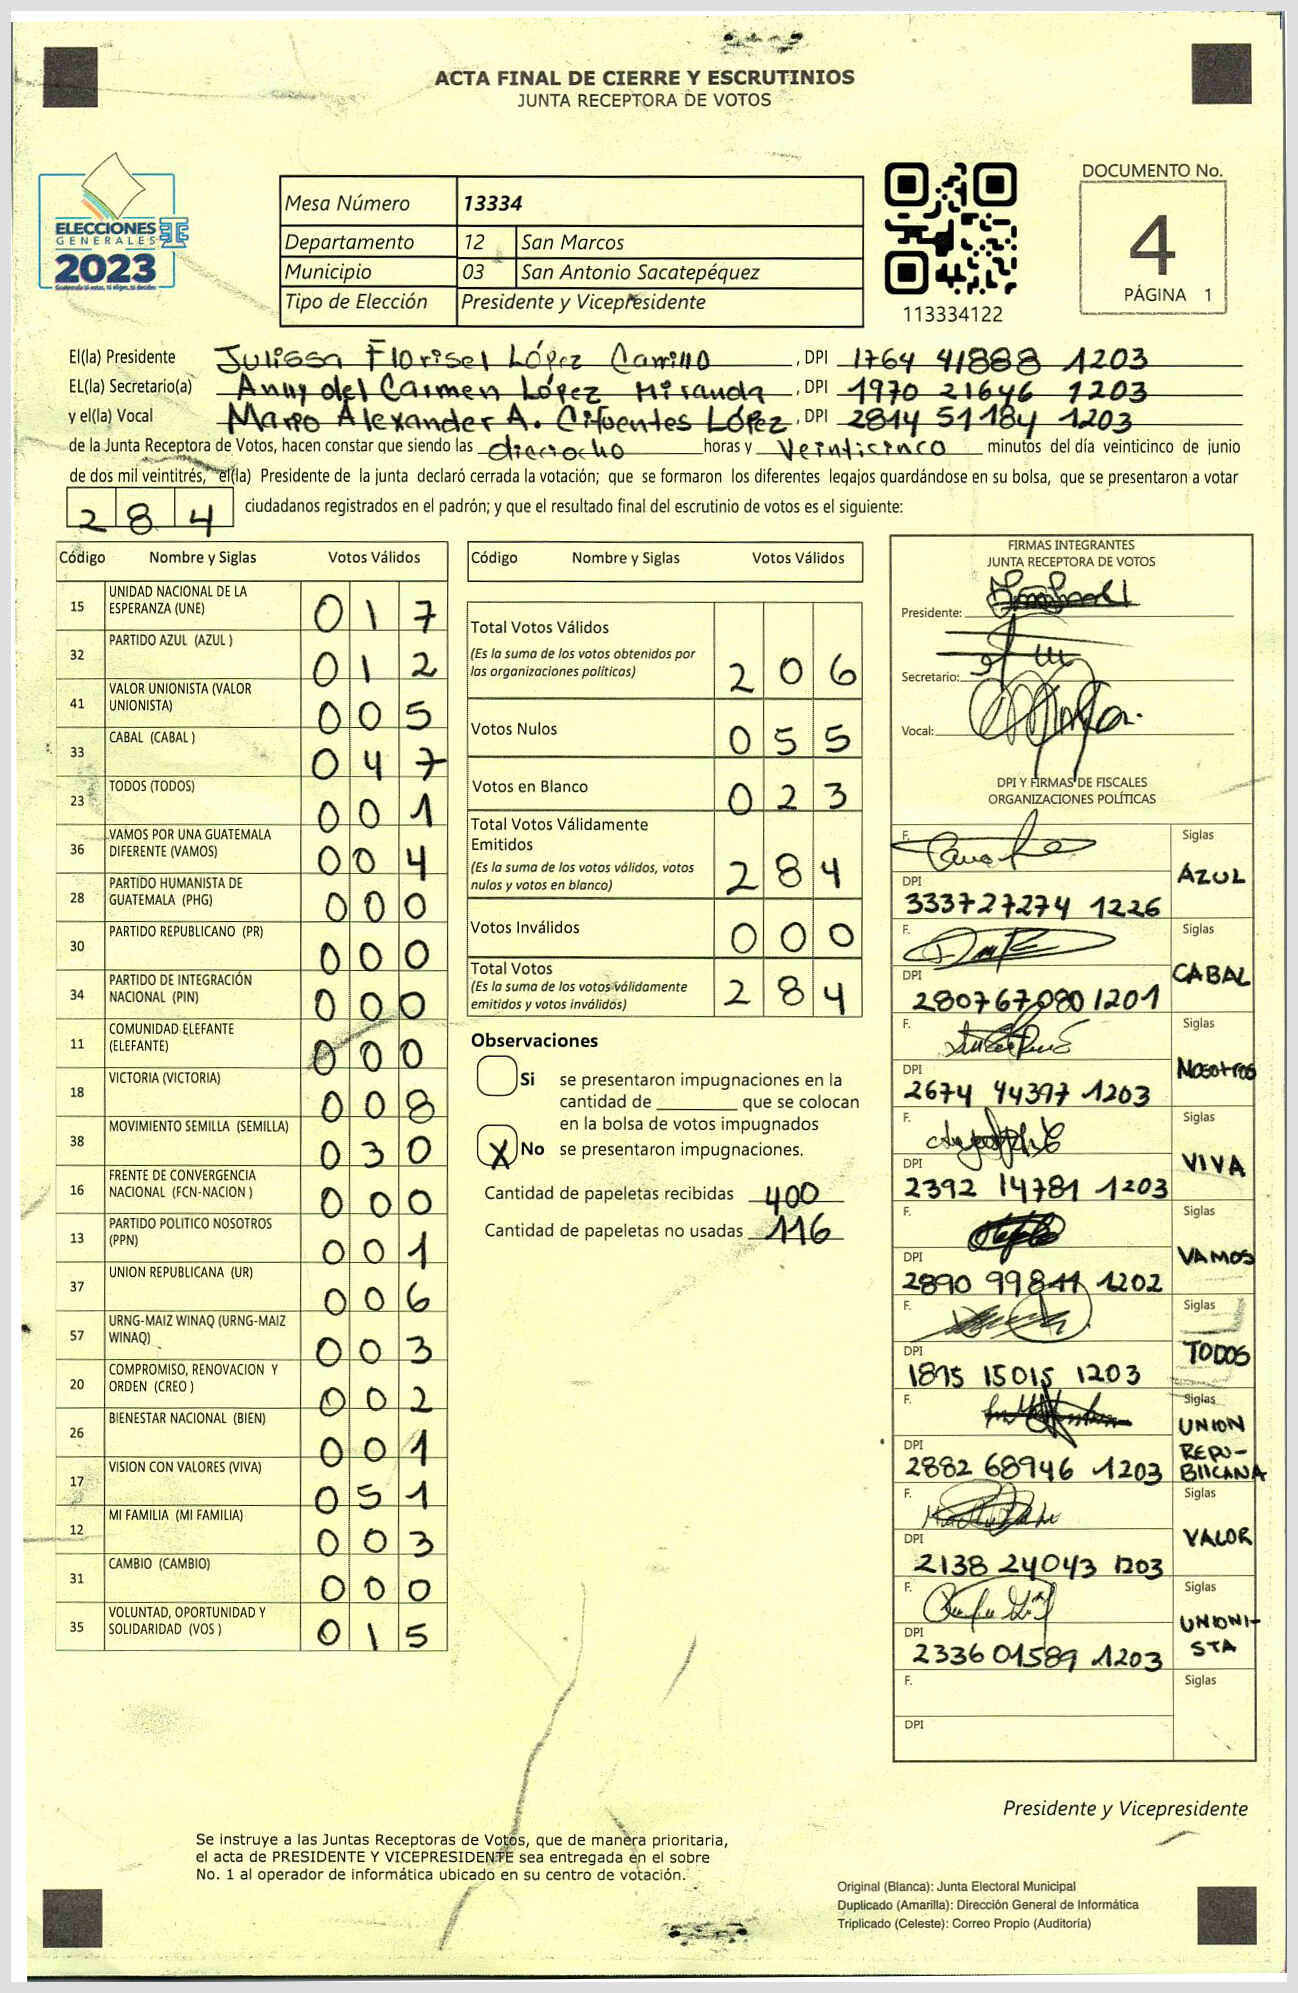 ACTA FINAL DE CIERRE Y ESCRUTINIOS
JUNTA RECEPTORA DE VOTOS
ELECCIONES
GENERALES
2023
Guatemala tú votas, tú eliges, tú decides
Mesa Número 13334
Departamento 12 San Marcos
Municipio 03 San Antonio Sacatepéquez
Tipo de Elección Presidente y Vicepresidente
113334122
DOCUMENTO No.
4
PÁGINA 1
El(la) Presidente Julissa Florisel López Carrillo, DPI 1764 41888 1203
EL(la) Secretario(a) Anny del Carmen López Miranda, DPI 1970 21646 1203
y el(la) Vocal Mario Alexander A. Cifuentes López, DPI 2814 51184 1203
de la Junta Receptora de Votos, hacen constar que siendo las dieciocho horas y veinticinco minutos del día veinticinco de junio
de dos mil veintitrés, el(la) Presidente de la junta declaró cerrada la votación; que se formaron los diferentes legajos guardándose en su bolsa, que se presentaron a votar
284 ciudadanos registrados en el padrón; y que el resultado final del escrutinio de votos es el siguiente:
Código Nombre y Siglas Votos Válidos
15 UNIDAD NACIONAL DE LA
ESPERANZA (UNE) 017
32 PARTIDO AZUL (AZUL ) 012
41 VALOR UNIONISTA (VALOR
UNIONISTA) 005
33 CABAL (CABAL ) 047
23 TODOS (TODOS) 001
36 VAMOS POR UNA GUATEMALA
DIFERENTE (VAMOS) 004
28 PARTIDO HUMANISTA DE
GUATEMALA (PHG) 000
30 PARTIDO REPUBLICANO (PR) 000
34 PARTIDO DE INTEGRACIÓN
NACIONAL (PIN) 000
11 COMUNIDAD ELEFANTE
(ELEFANTE) 000
18 VICTORIA (VICTORIA) 008
38 MOVIMIENTO SEMILLA (SEMILLA) 030
16 FRENTE DE CONVERGENCIA
NACIONAL (FCN-NACION ) 000
13 PARTIDO POLITICO NOSOTROS
(PPN) 001
37 UNION REPUBLICANA (UR) 006
57 URNG-MAIZ WINAQ (URNG-MAIZ
WINAQ) 003
20 COMPROMISO, RENOVACION Y
ORDEN (CREO ) 002
26 BIENESTAR NACIONAL (BIEN) 001
17 VISION CON VALORES (VIVA) 051
12 MI FAMILIA (MI FAMILIA) 003
31 CAMBIO (CAMBIO) 000
35 VOLUNTAD, OPORTUNIDAD Y
SOLIDARIDAD (VOS ) 015
Código Nombre y Siglas Votos Válidos
Total Votos Válidos
(Es la suma de los votos obtenidos por
las organizaciones políticas) 206
Votos Nulos 055
Votos en Blanco 023
Total Votos Válidamente
Emitidos
(Es la suma de los votos válidos, votos
nulos y votos en blanco) 284
Votos Inválidos 000
Total Votos
(Es la suma de los votos válidamente
emitidos y votos inválidos) 284
Observaciones
Si se presentaron impugnaciones en la
cantidad de ________ que se colocan
en la bolsa de votos impugnados
X No se presentaron impugnaciones.
Cantidad de papeletas recibidas 400
Cantidad de papeletas no usadas 116
FIRMAS INTEGRANTES
JUNTA RECEPTORA DE VOTOS
Presidente:
Secretario:
Vocal:
DPI Y FIRMAS DE FISCALES
ORGANIZACIONES POLÍTICAS
F. Siglas
AZUL
DPI
333727274 1226
F. Siglas
CABAL
DPI
280767080 1201
F. Siglas
NOSOTROS
DPI
2674 44397 1203
F. Siglas
VIVA
DPI
2392 14781 1203
F. Siglas
VAMOS
DPI
2890 99811 1202
F. Siglas
TODOS
DPI
1875 15015 1203
F. Siglas
UNION
REPU-
BLICANA
DPI
2882 68946 1203
F. Siglas
VALOR
DPI
2138 24043 1203
F. Siglas
UNIONI-
STA
DPI
2336 01589 1203
F. Siglas
DPI
Presidente y Vicepresidente
Se instruye a las Juntas Receptoras de Votos, que de manera prioritaria,
el acta de PRESIDENTE Y VICEPRESIDENTE sea entregada en el sobre
No. 1 al operador de informática ubicado en su centro de votación.
Original (Blanca): Junta Electoral Municipal
Duplicado (Amarilla): Dirección General de Informática
Triplicado (Celeste): Correo Propio (Auditoría)